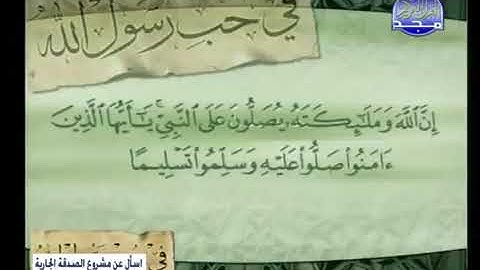 في حب رسول الله
مجد
إِنَّ ٱللَّهَ وَمَلَٰٓئِكَتَهُۥ يُصَلُّونَ عَلَى ٱلنَّبِيِّۚ يَٰٓأَيُّهَا ٱلَّذِينَ
ءَامَنُوا۟ صَلُّوا۟ عَلَيْهِ وَسَلِّمُوا۟ تَسْلِيمًا
اسأل عن مشروع الصدقة الجارية